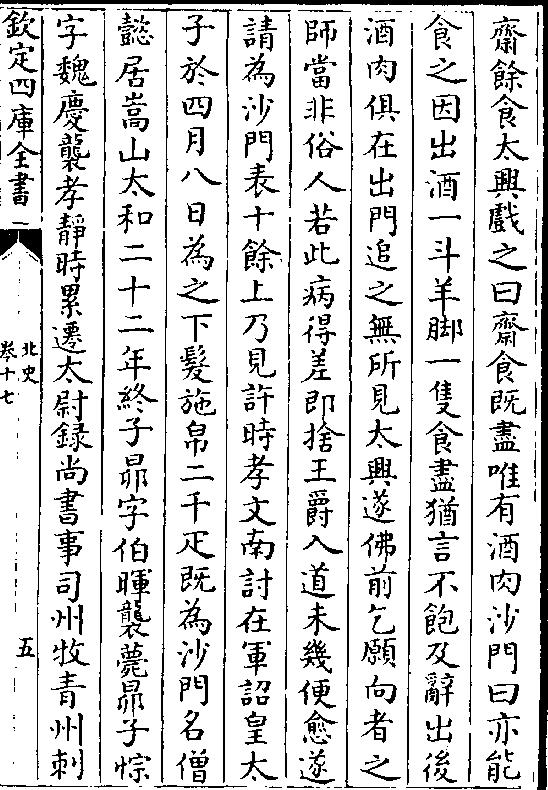 齋餘食太興戲之曰齋食既盡唯有酒肉沙門曰亦能
食之因出酒一斗羊脚一隻食盡猶言不飽及辭出後
酒肉俱在出門追之無所見太興遂佛前乞願向者之
師當非俗人若此病得差即捨王爵入道未幾便愈遂
請為沙門表十餘上乃見許時孝文南討在軍詔皇太
子於四月八日為之下髮施帛二千疋既為沙門名僧
懿居嵩山太和二十二年終子昴字伯暉襲薨昴子悰
字魏慶襲孝靜時累遷太尉録尚書事司州牧青州刺
欽定四庫全書
北史
卷十七
五